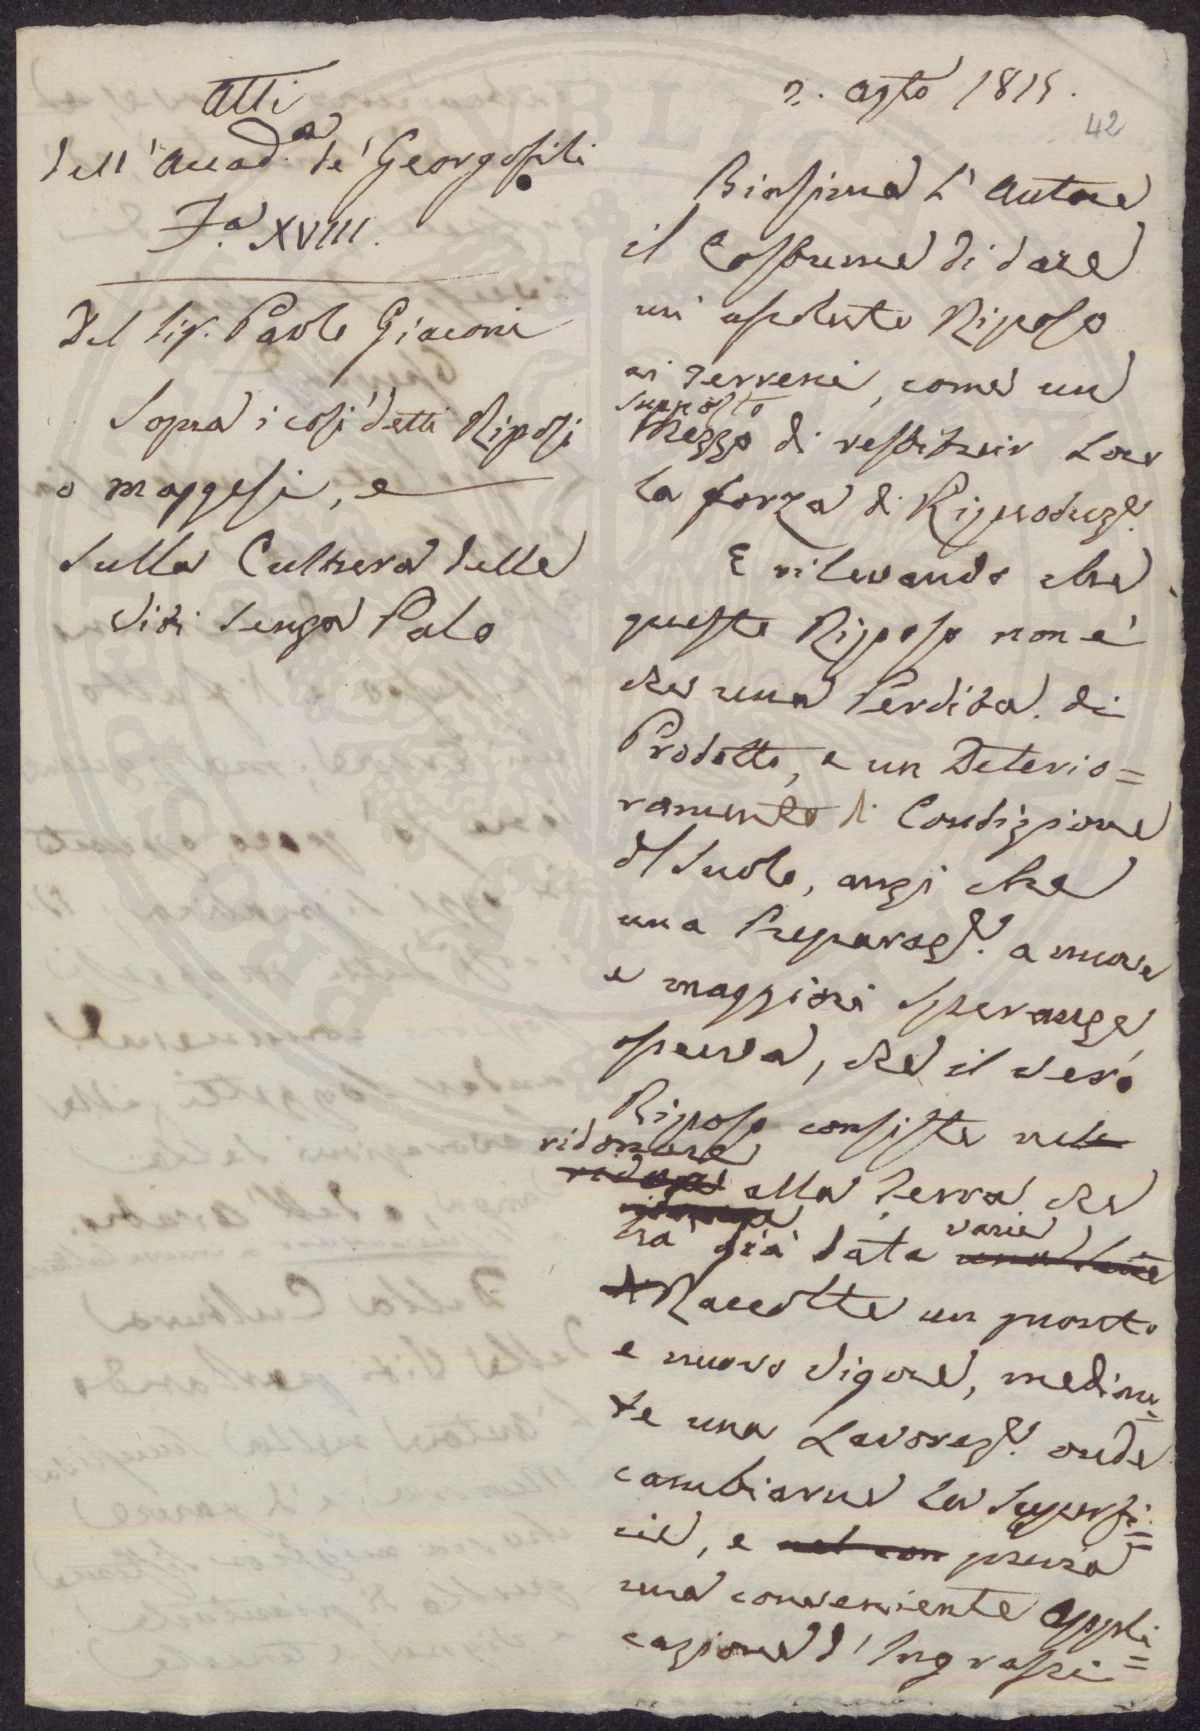 Atti
dell'Accad.a de' Georgofili
T.a XVIII.
Del Sig. Paolo Giaconi
Sopra i così detti Riposi
o maggesi, e
Sulla Cultura delle
Viti senza Palo
2. Agto 1815.
42
Biasima l'Autore
il Costume di dare
un assoluto Riposo
ai Terreni, come un
supposto
Mezzo di restituir Loro
la forza di Riproduz.e
E rilevando che
questo Riposo non e'
che una Perdita di
Prodotto, e un Deterio=
ramento di Condizione
del Suolo, anzi che
una Preparaz.e a nuove
e maggiori speranze
pensa, che il vero
Riposo consiste nel
ridonare
alla Terra che
ha già data varie
Raccolte un pronto
e nuovo vigore, median=
te una Lavoraz.e onde
cambiarne la Superfi=
cie, e nel con previa
una conveniente Appli
cazione d'Ingrassi=